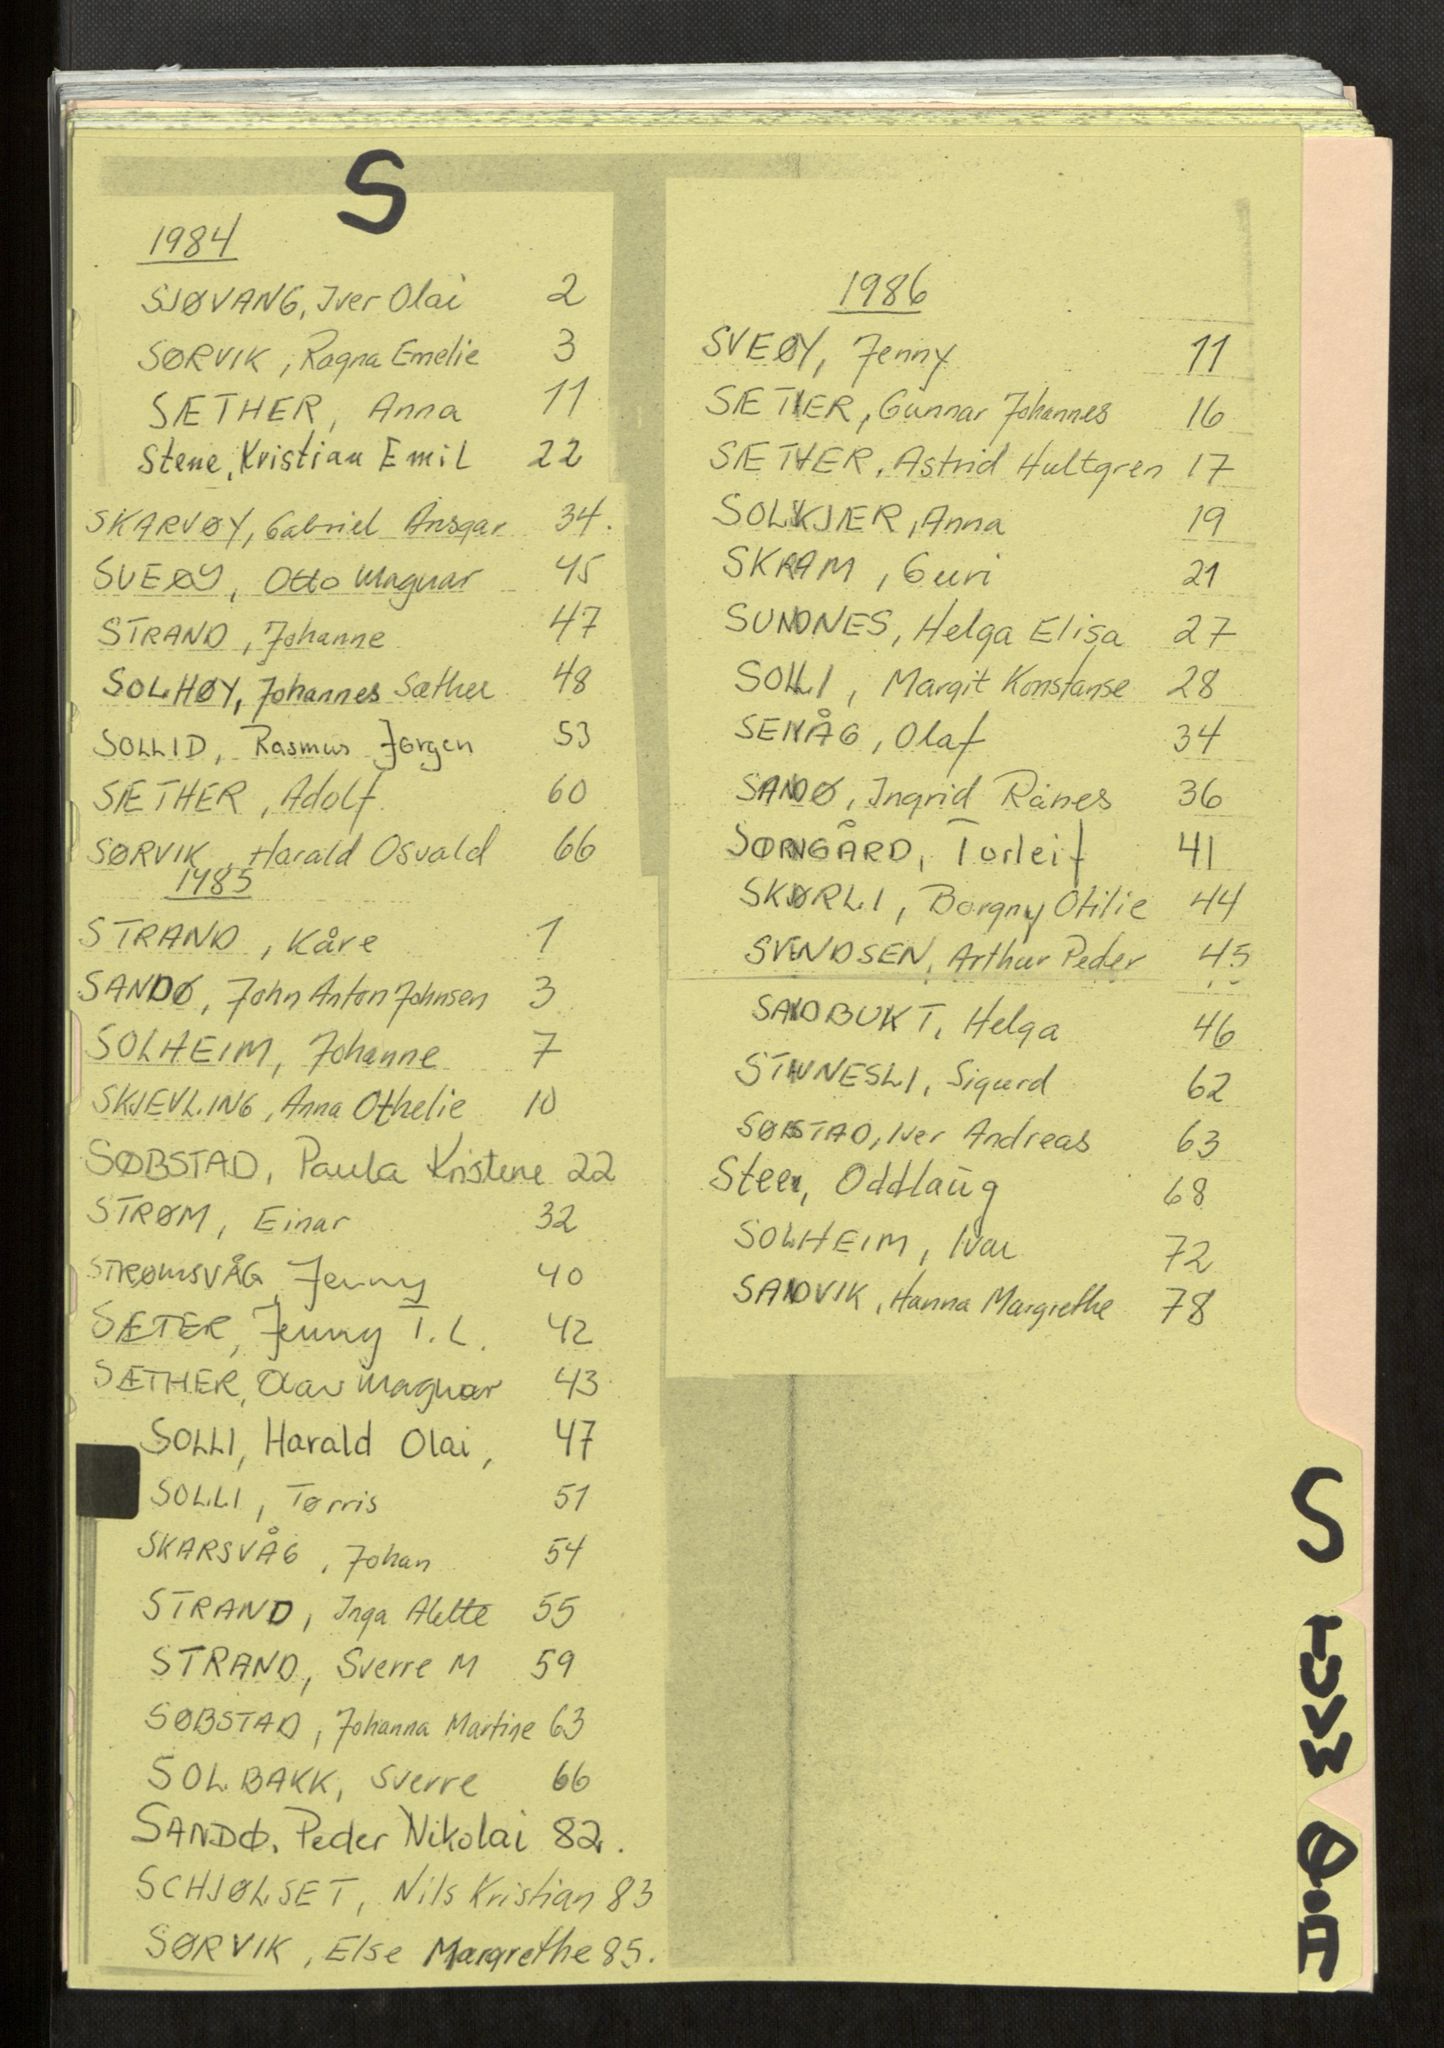 S
1984
SJØVANG, Iver Olai 2
SØRVIK, Ragna Emelie 3
SÆTHER, Anna 11
Stene, Kristian Emil 22
SKARVØY, Gabriel Ansgar 34.
SVEØY, Otto Magnar 45
STRAND, Johanne 47
SOLHØY, Johannes Sæther 48
SOLLID, Rasmus Jørgen 53
SÆTHER, Adolf 60
SØRVIK, Harald Osvald 66
1985
STRAND, Kåre 1
SANDØ, John Anton Johnsen 3
SOLHEIM, Johanne 7
SKJEVLING, Anna Othelie 10
SØBSTAD, Paula Kristene 22
STRØM, Einar 32
STRØMSVÅG, Jenny 40
SÆTER, Jenny I. L. 42
SÆTHER, Olav Magnar 43
SOLLI, Harald Olai, 47
SOLLI, Tørris 51
SKARSVÅG, Johan 54
STRAND, Inga Alette 55
STRAND, Sverre M 59
SØBSTAD, Johanna Martine 63
SOLBAKK, Sverre 66
SANDØ, Peder Nikolai 82.
SCHJØLSET, Nils Kristian 83
SØRVIK, Else Margrethe 85.
1986
SVEØY, Jenny 11
SÆTHER, Gunnar Johannes 16
SÆTHER, Astrid Hultgren 17
SOLKJÆR, Anna 19
SKRAM, Guri 21
SUNDNES, Helga Elisa 27
SOLLI, Margit Konstanse 28
SENÅG, Olaf 34
SANDØ, Ingrid Rånes 36
SØRNGÅRD, Torleif 41
SKØRLI, Borgny Otilie 44
SVENDSEN, Arthur Peder 45
SANDBUKT, Helga 46
Sigurd 62
SØBSTAD, Iver Andreas 63
Steen, Oddlaug 68
SOLHEIM, Ivar 72
SANDVIK, Hanna Margrethe 78
S
TUVW
Ø.Å